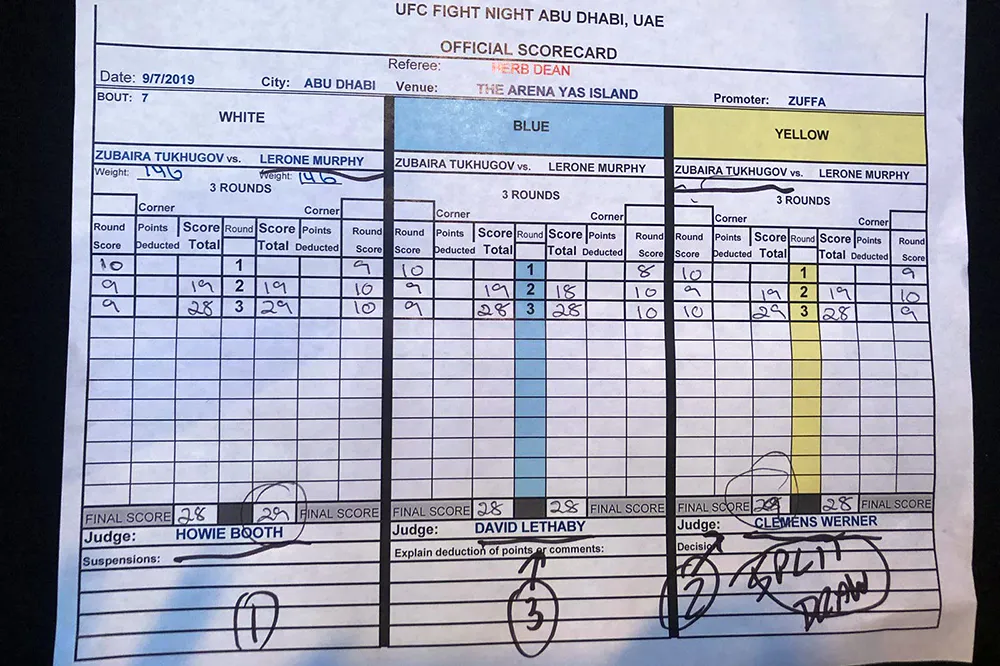 UFC FIGHT NIGHT ABU DHABI, UAE
OFFICIAL SCORECARD
Referee: HERB DEAN
Date: 9/7/2019 City: ABU DHABI Venue: THE ARENA YAS ISLAND Promoter: ZUFFA
BOUT: 7
WHITE BLUE YELLOW
ZUBAIRA TUKHUGOV vs. LERONE MURPHY ZUBAIRA TUKHUGOV vs. LERONE MURPHY ZUBAIRA TUKHUGOV vs. LERONE MURPHY
Weight: 146 Weight: 146
3 ROUNDS 3 ROUNDS 3 ROUNDS
Corner Corner Corner Corner Corner Corner
Round Points Score Round Score Points Round Round Points Score Round Score Points Round Round Points Score Round Score Points Round
Score Deducted Total Total Deducted Score Score Deducted Total Total Deducted Score Score Deducted Total Total Deducted Score
10 1 9 10 1 8 10 1 9
9 19 2 19 10 9 19 2 18 10 9 19 2 19 10
9 28 3 29 10 9 28 3 28 10 10 29 3 28 9
FINAL SCORE 28 29 FINAL SCORE FINAL SCORE 28 28 FINAL SCORE FINAL SCORE 29 28 FINAL SCORE
Judge: HOWIE BOOTH Judge: DAVID LETHABY Judge: CLEMENS WERNER
Suspensions: Explain deduction of points or comments: Decision
1 3 2 SPLIT
DRAW